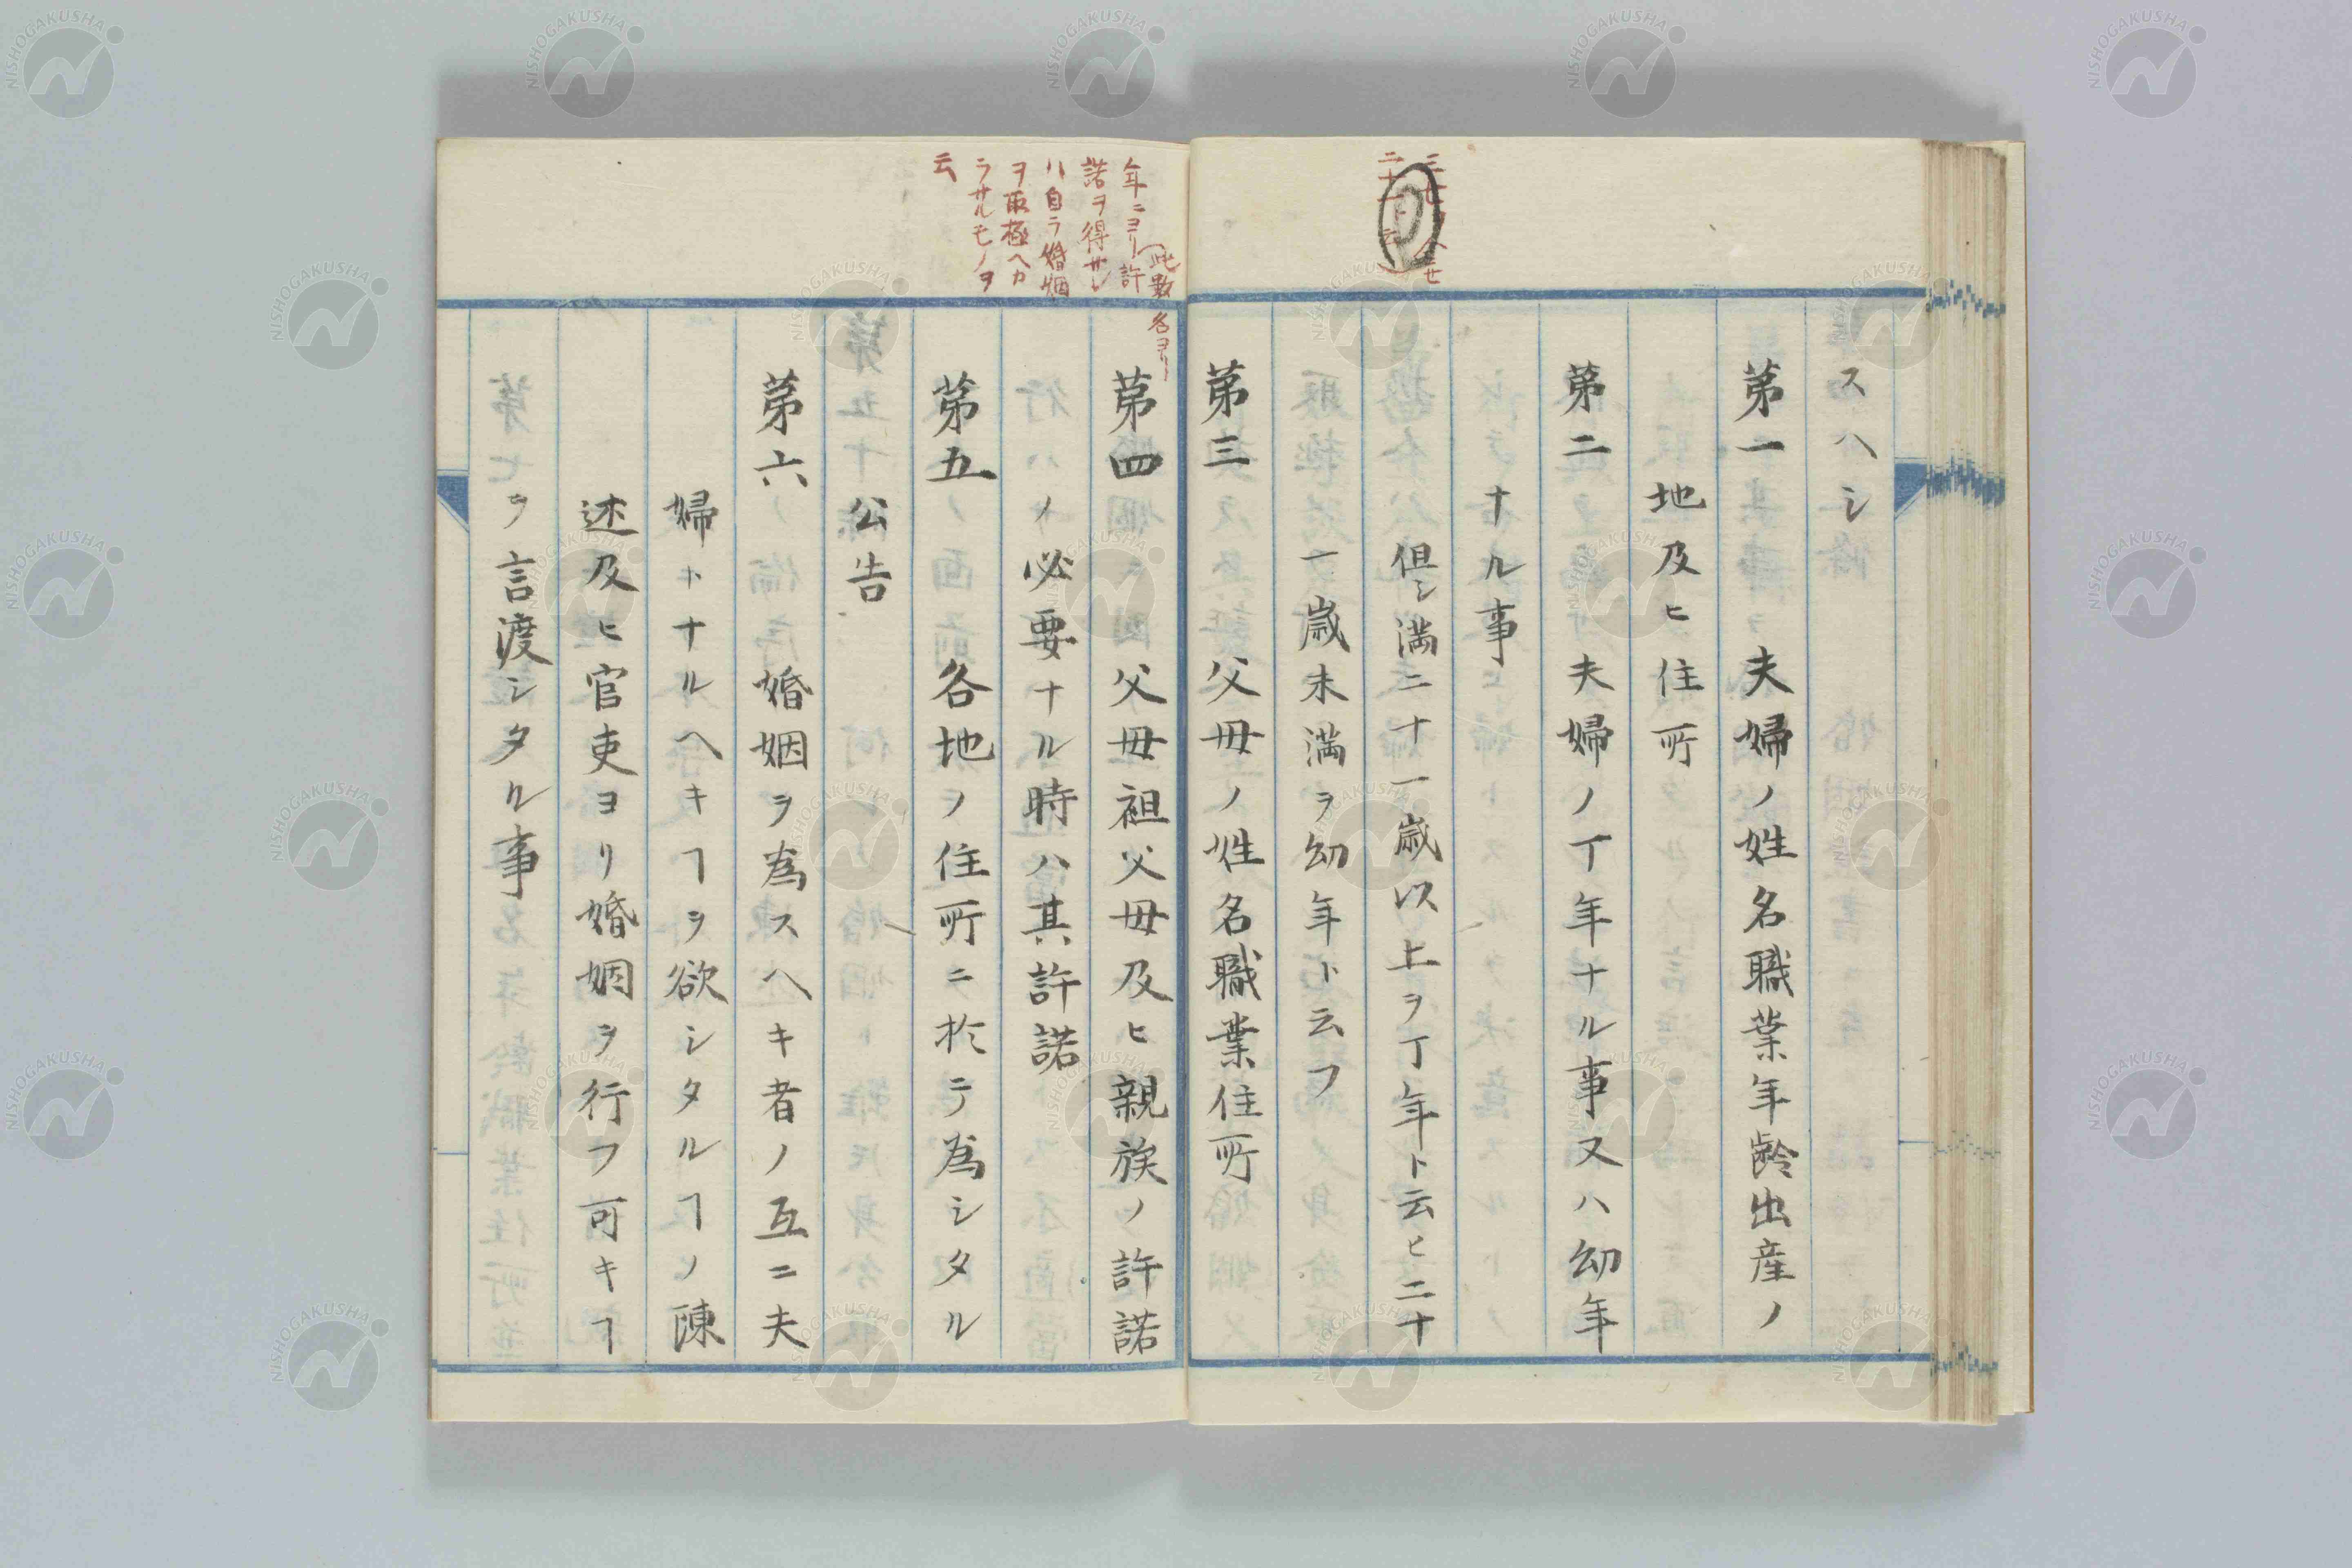 スヘシ
第一 夫婦ノ姓名職業年齢出産ノ
地及ヒ住所
第二 夫婦ノ丁年ナル事又ハ幼年
ナル事
但シ満二十一歳以上ヲ丁年ト云ヒ二十
一歳未満ヲ幼年ト云フ
第三 父母ノ姓名職業住所
第四 父母祖父母及ヒ親族ノ許諾
ノ必要ナル時ハ其許諾
第五 各地ノ住所ニ於テ為シタル
公告
第六 婚姻ヲ為スヘキ者ノ互ニ夫
婦トナルヘキヿヲ欲シタルヿノ陳
述及ヒ官吏ヨリ婚姻ヲ行フ可キヿ
ヲ言渡シタル事
年ニヨリ許
諾ヲ得サレ
ハ自ラ婚姻
ヲ取極ヘカ
ラサルモノヲ
云
NISHOGAKUSHA